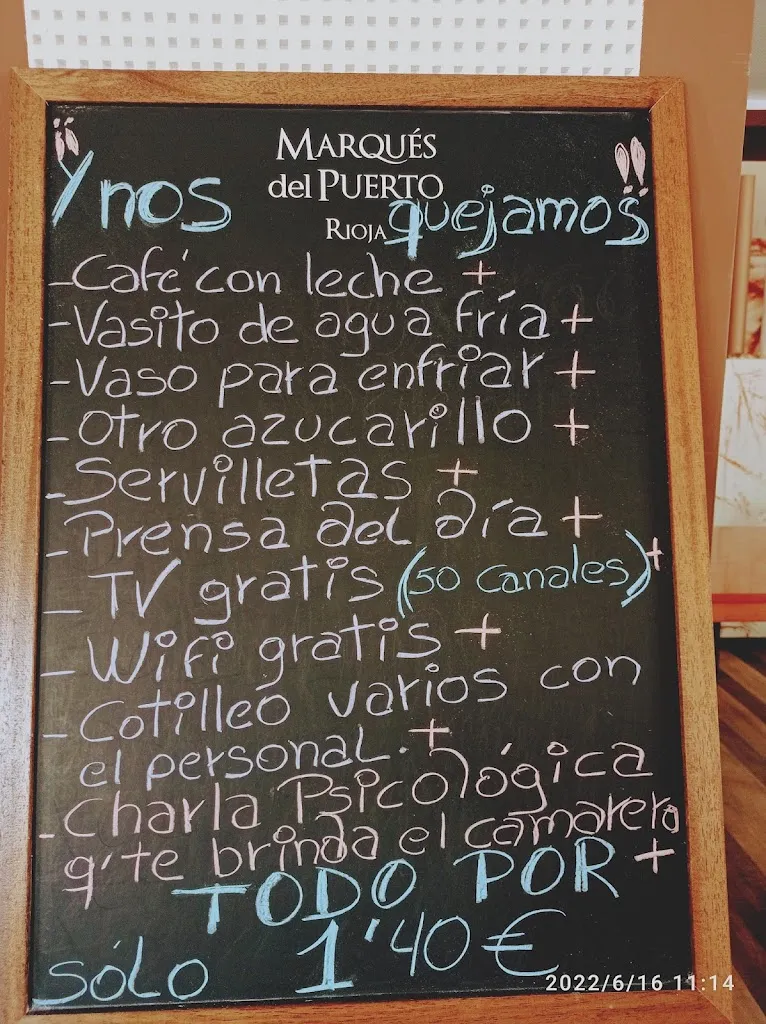 MARQUÉS
del PUERTO
RIOJA
¡¡
Y nos quejamos!!
- Café con leche +
- Vasito de agua fría +
- Vaso para enfriar +
- Otro azucarillo +
- Servilletas +
- Prensa del día +
- TV gratis (50 canales) +
- Wifi gratis +
- Cotilleo varios con
el personal. +
- Charla Psicológica
q' te brinda el camarero +
TODO POR
SÓLO 1'40 €
2022/6/16 11:14